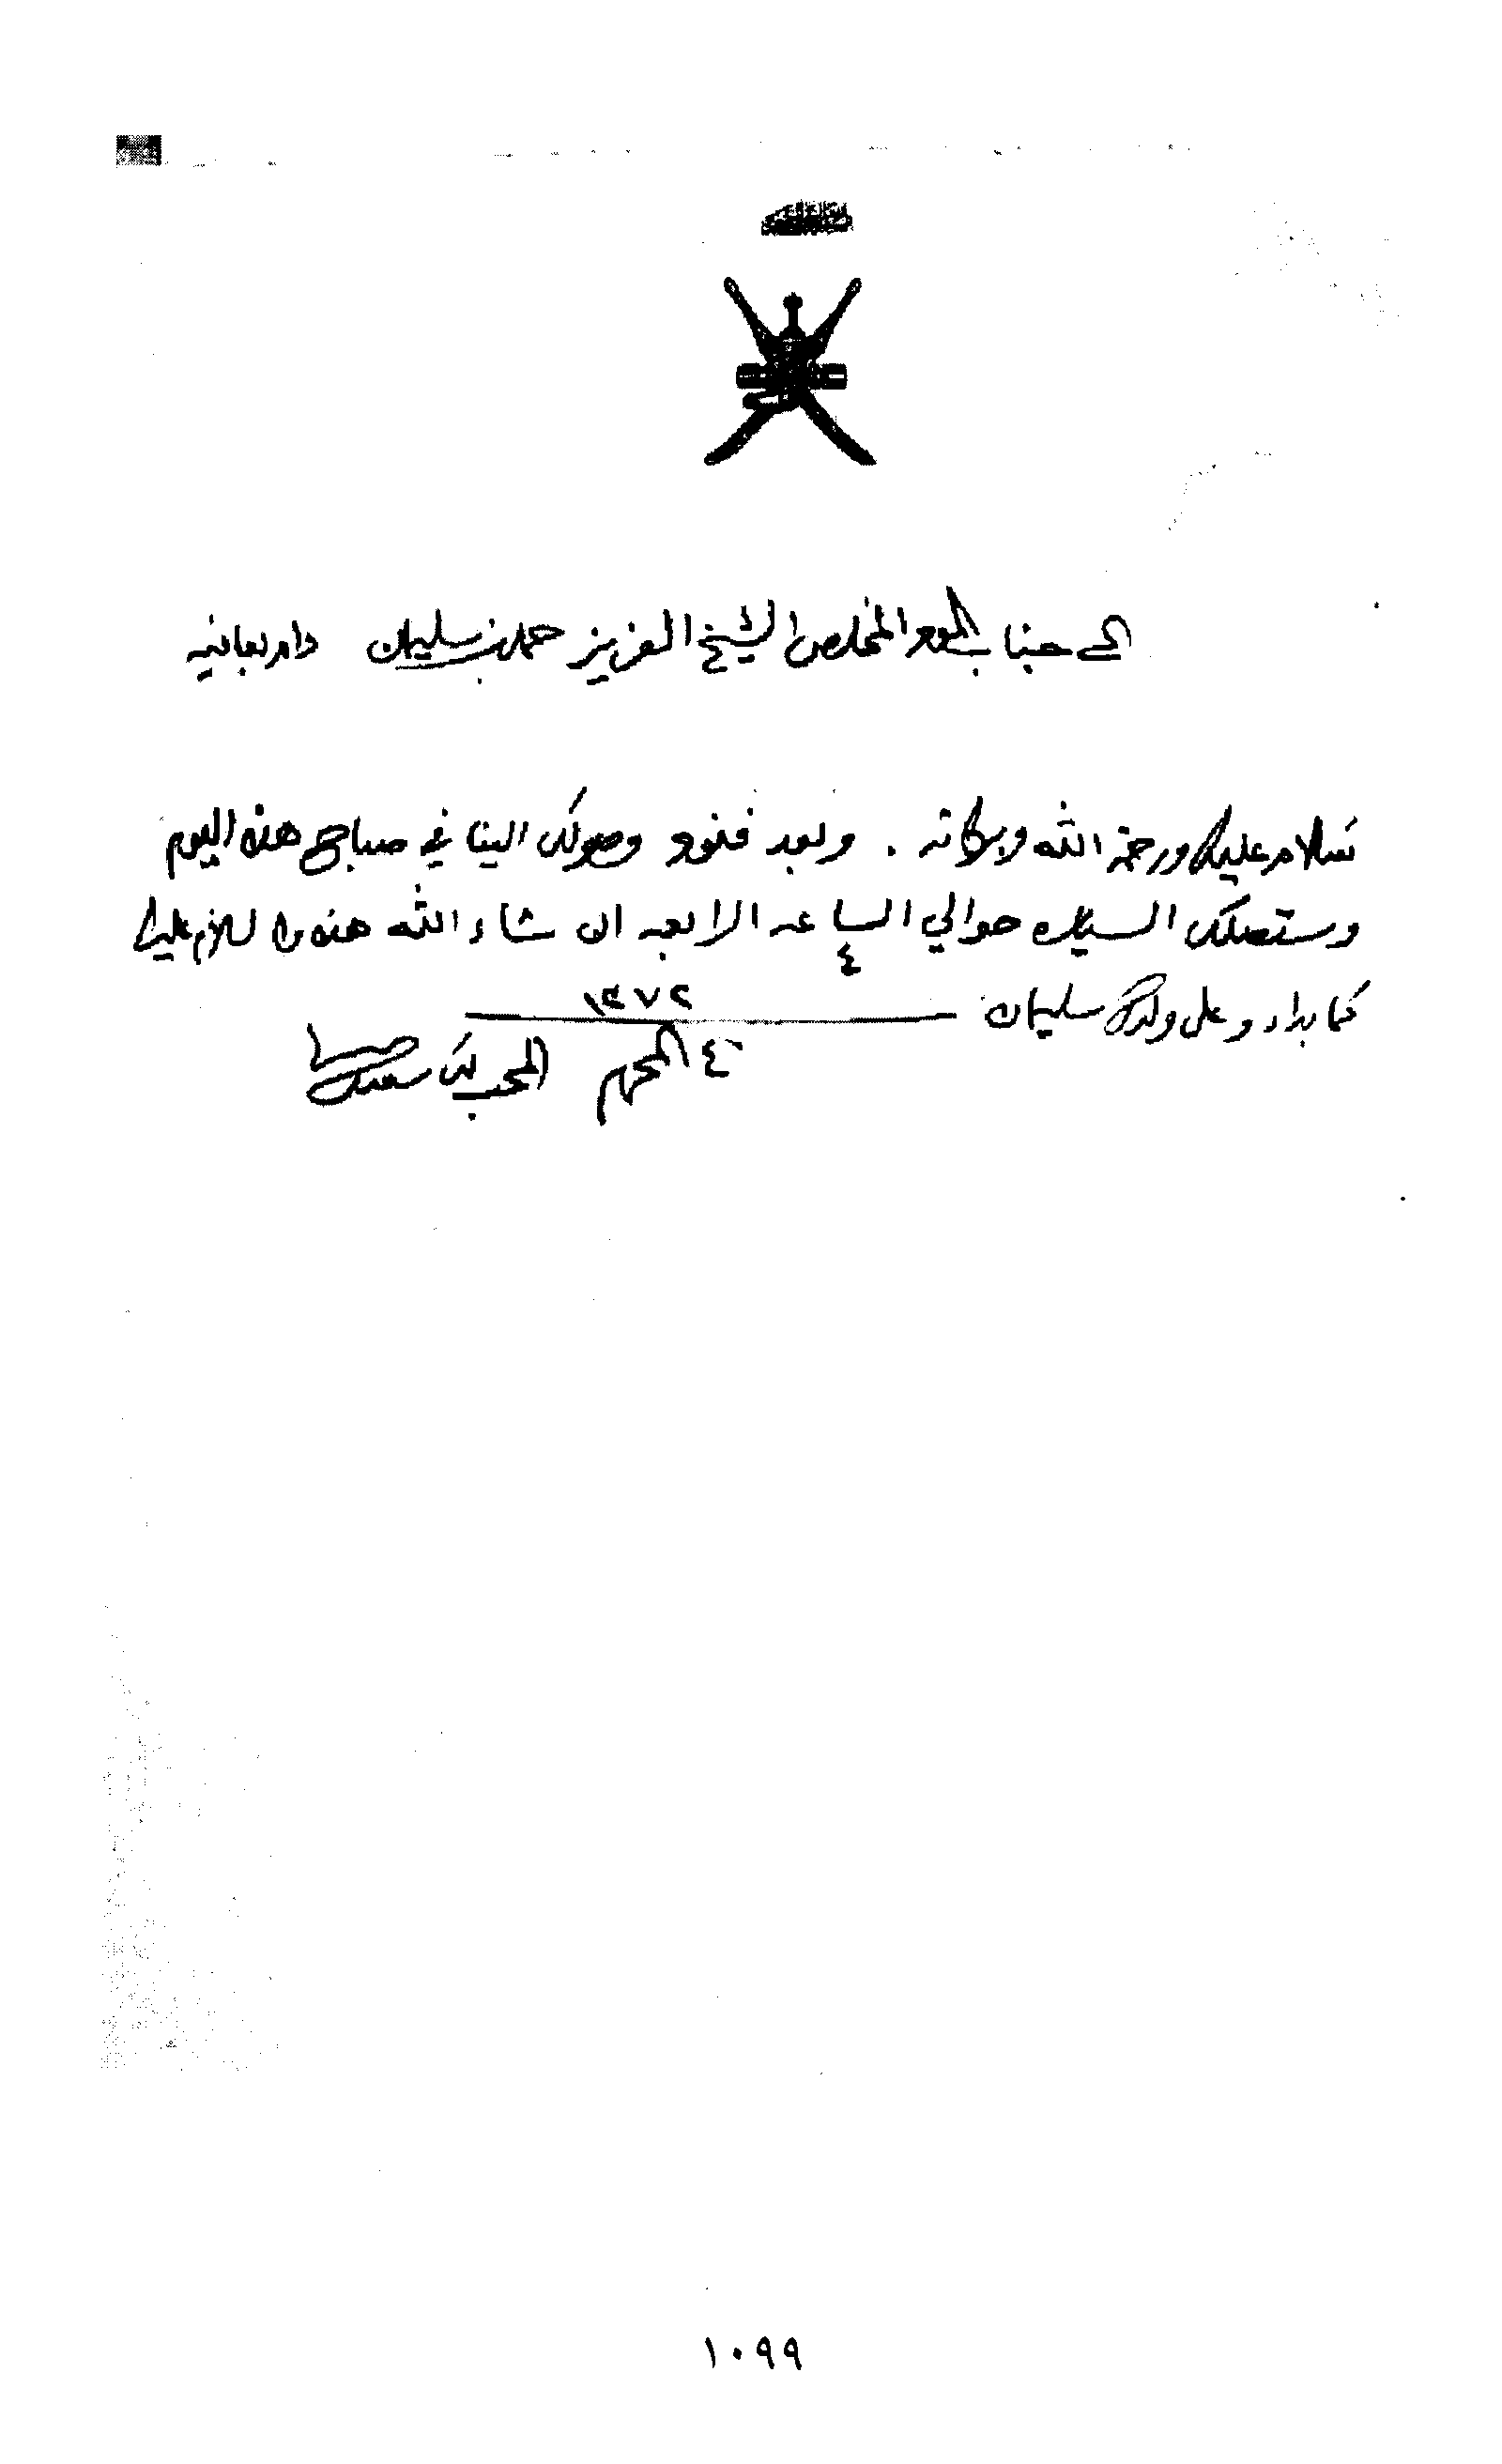 الى جناب المود المخلص الشيخ العزيز حمد بن سليمان دام بعافيه
سلام عليك ورحمة الله وبركاته . وبعد فنود وصولك الينا في صباح هذه اليوم
وستصلك السياره حوالي الساعه الاربعه ان شاء الله هذه ولا والسلام عليك
٤
كما بداء وعلى ولدك سليمان
١٣٧٢
٤ المحرم المحب لك سعيد
١٠٩٩